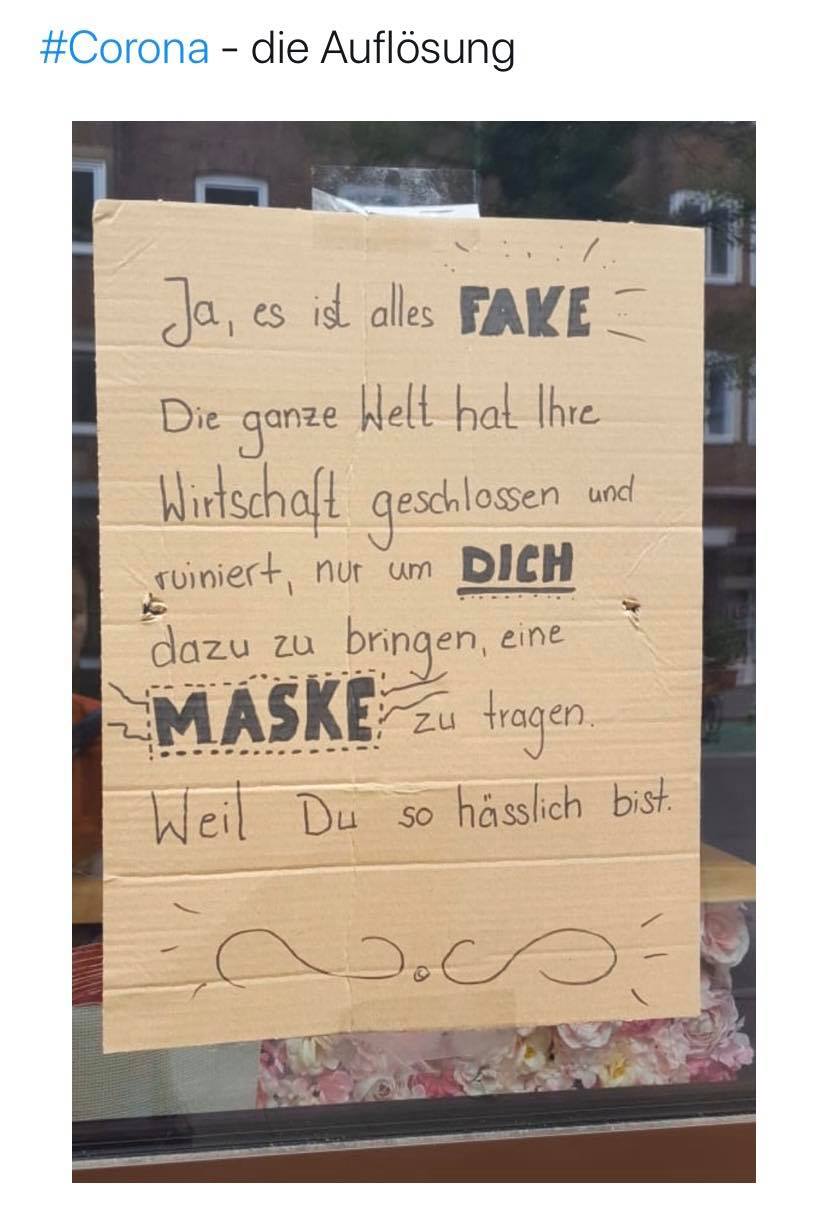 #Corona - die Auflösung
Ja, es ist alles FAKE
Die ganze Welt hat Ihre
Wirtschaft geschlossen und
ruiniert, nur um DICH
dazu zu bringen, eine
MASKE zu tragen.
Weil Du so hässlich bist.